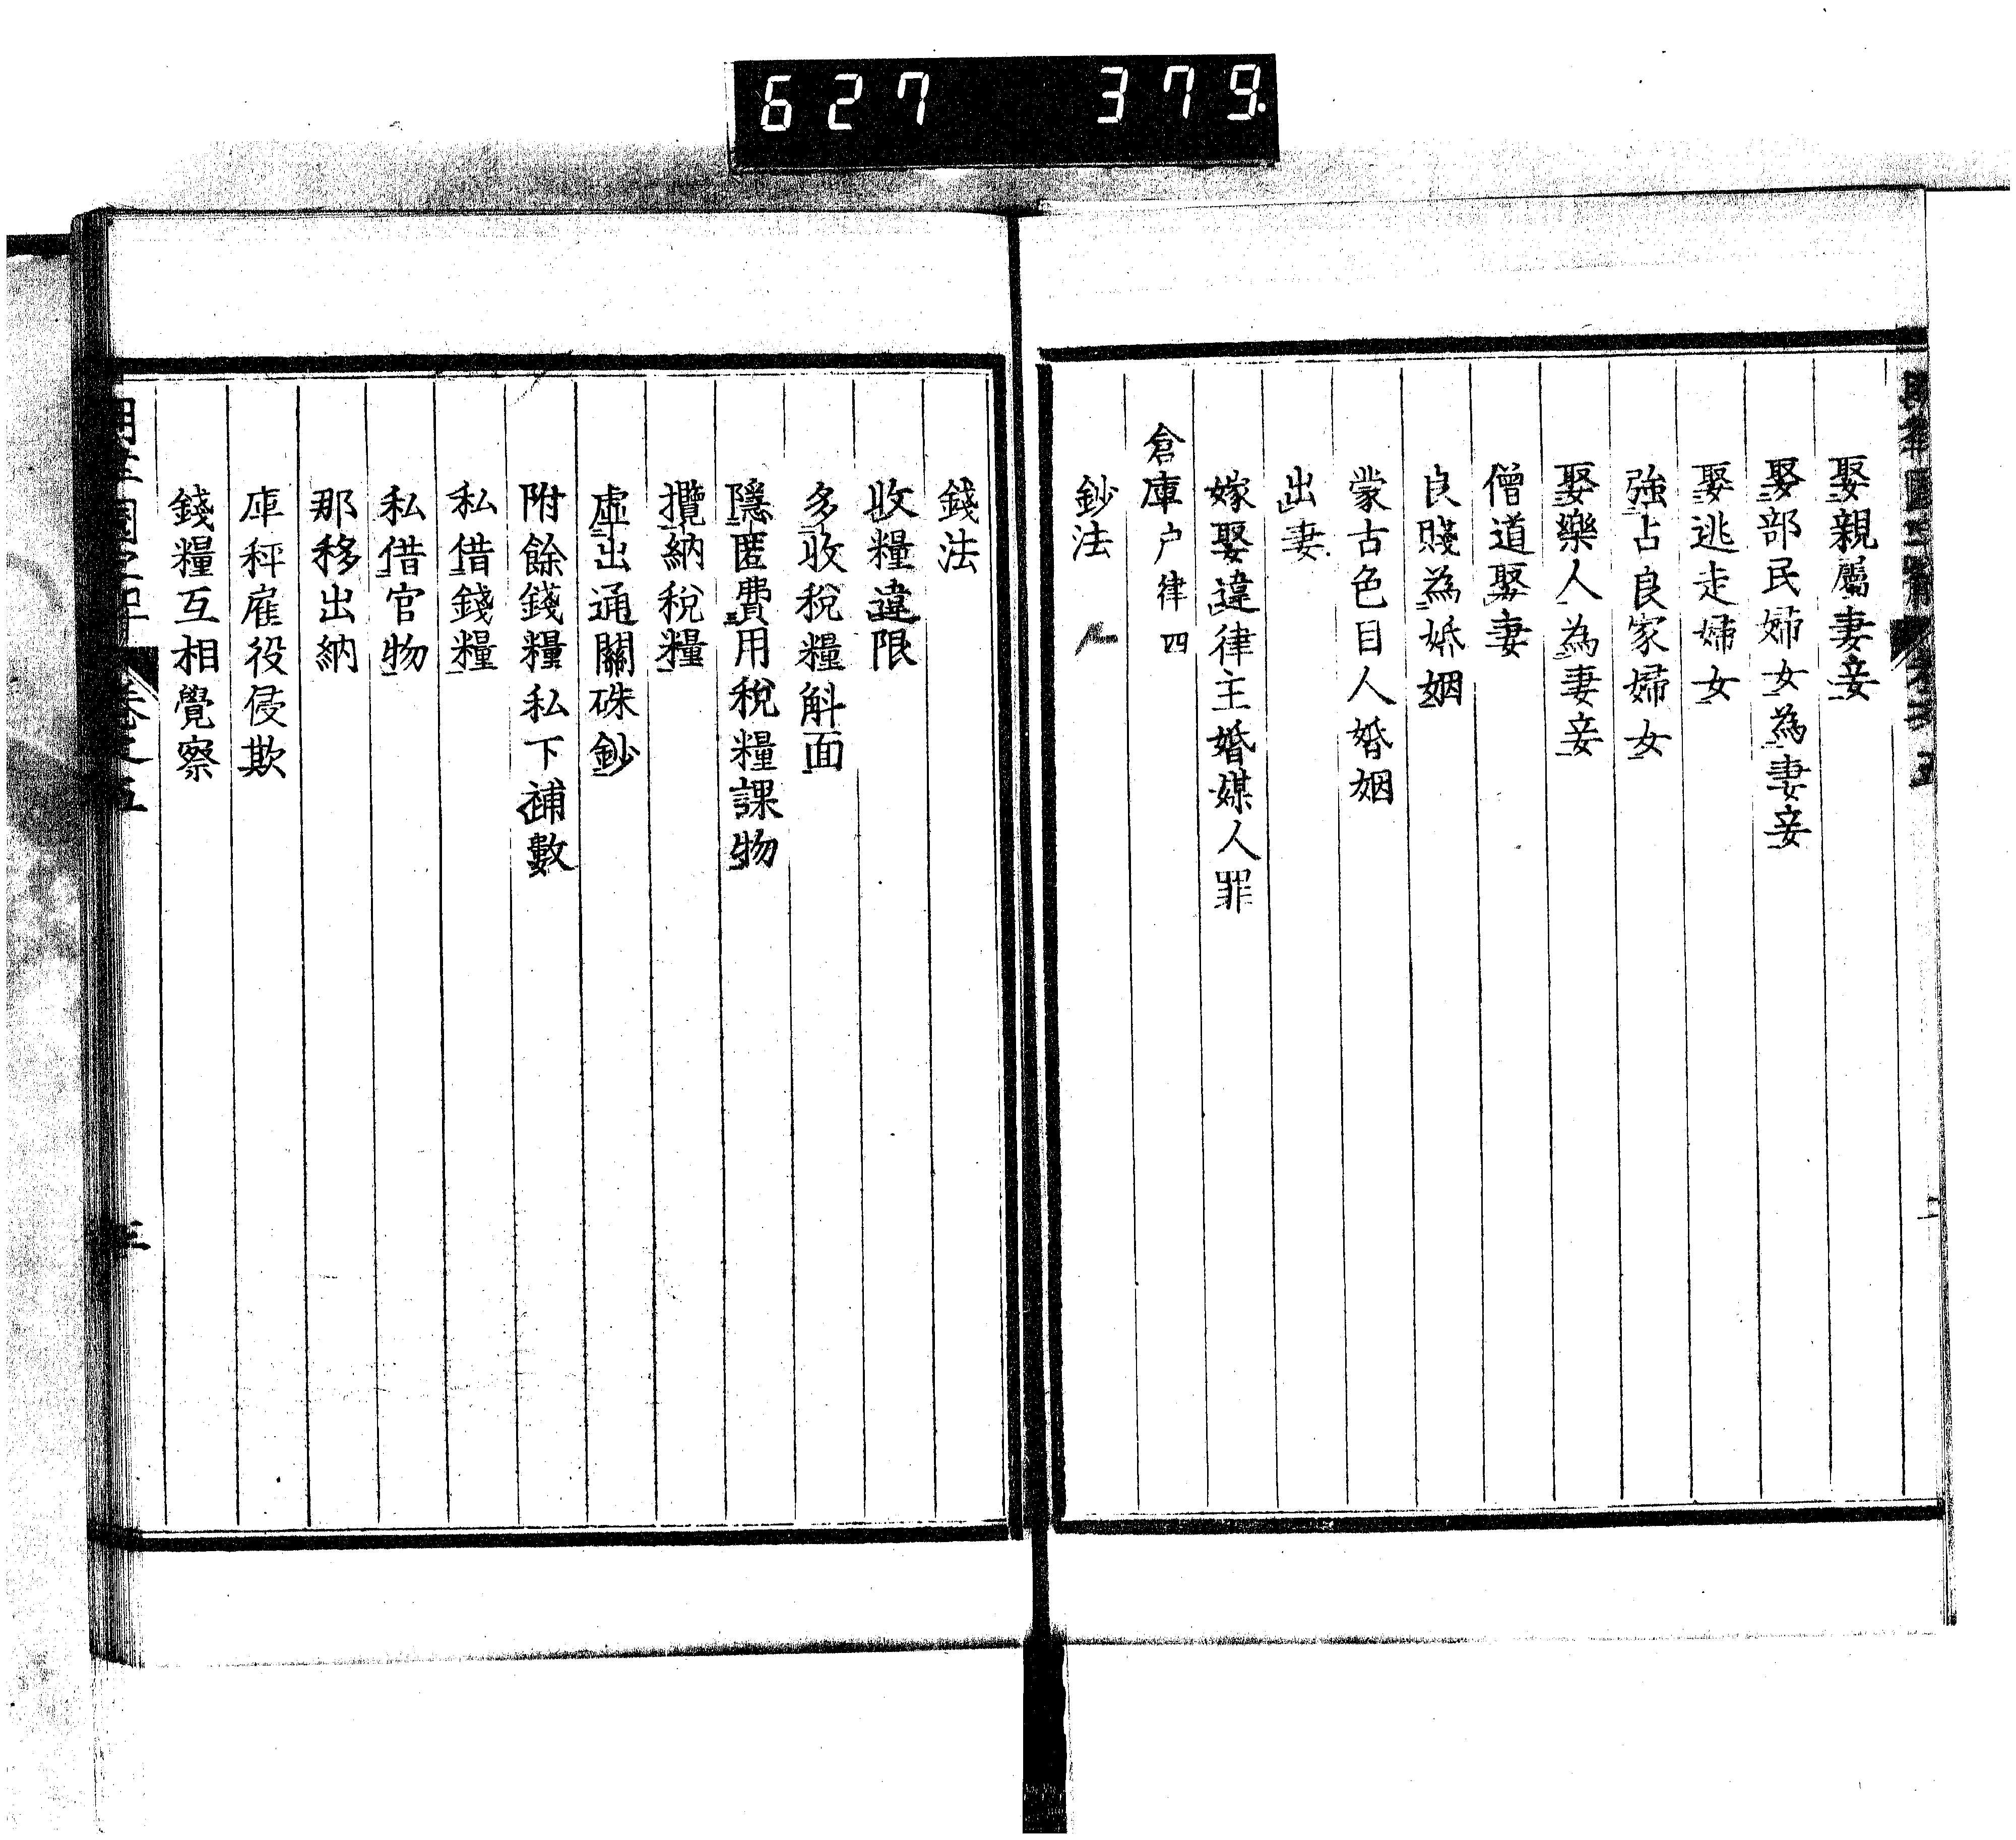 627 379
娶親屬妻妾
娶部民婦女為妻妾
娶逃走婦女
強占良家婦女
娶樂人為妻妾
僧道娶妻
良賤為婚姻
蒙古色目人婚姻
出妻
嫁娶違律主婚媒人罪
倉庫户律四
鈔法
錢法
收糧違限
多收稅糧斛面
隱匿費用稅糧課物
攬納稅糧
虛出通關硃鈔
附餘錢糧私下補數
私借錢糧
私借官物
那移出納
庫秤雇役侵欺
錢糧互相覺察